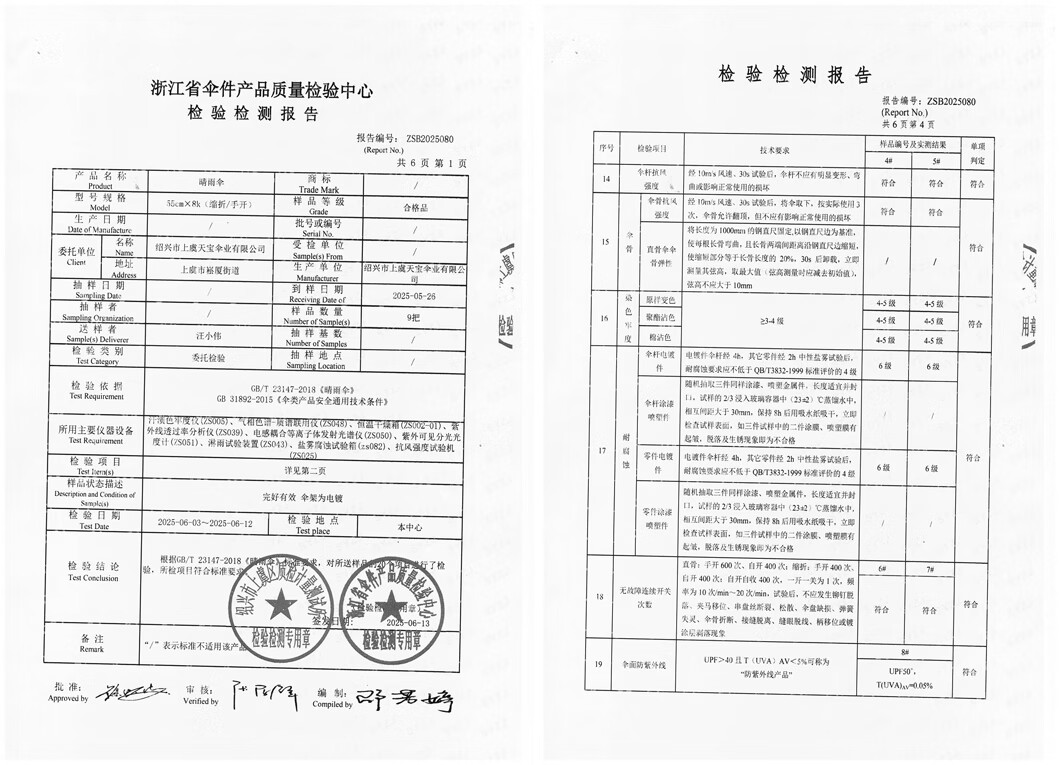 浙江省伞件产品质量检验中心
检验检测报告
报告编号: ZSB2025080
(Report No.)
共 6 页 第 1 页
产品名称 Product 晴雨伞 商标 Trade Mark /
型号规格 Model 55cm×8k(缩折/手开) 样品等级 Grade 合格品
生产日期 Date of Manufacture / 批号或编号 Serial No. /
委托单位 Client 名称 Name 绍兴市上虞天宝伞业有限公司 受检单位 Sample(s) From /
地址 Address 上虞市崧厦街道 生产单位 Manufacturer 绍兴市上虞天宝伞业有限公司
抽样日期 Sampling Date / 到样日期 Receiving Date of 2025-05-26
抽样者 Sampling Organization / 样品数量 Number of Sample(s) 9把
送样者 Sample(s) Deliverer 汪小伟 抽样基数 Number of Samples /
检验类别 Test Category 委托检验 抽样地点 Sampling Location /
检验依据 Test Requirement
GB/T 23147-2018《晴雨伞》
GB 31892-2015《伞类产品安全通用技术条件》
所用主要仪器设备 Test Requirement
汗渍色牢度仪(ZS005)、气相色谱-质谱联用仪(ZS048)、恒温干燥箱(ZS002-01)、紫
外线透过率分析仪(ZS039)、电感耦合等离子体发射光谱仪(ZS050)、紫外可见分光光
度计(ZS051)、淋雨试验装置(ZS043)、盐雾腐蚀试验箱(zs082)、抗风强度试验机
(ZS025)
检验项目 Test Item(s) 详见第二页
样品状态描述 Description and Condition of Sample(s) 完好有效 伞架为电镀
检验日期 Test Date 2025-06-03～2025-06-12 检验地点 Test place 本中心
检验结论 Test Conclusion
根据GB/T 23147-2018《晴雨伞》标准要求,对所送样品的20个项目进行了检
验,所检项目符合标准要求
绍兴市上虞区质检计量测试所
检验检测专用章
浙江省伞件产品质量检验中心
检验检测专用章
签发日期: 2025-06-13
备注 Remark “/”表示标准不适用该产品
批准: Approved by
审核: Verified by
编制: Compiled by
检验检测报告
报告编号: ZSB2025080
(Report No.)
共 6 页第 4 页
序号 检验项目 技术要求 样品编号及实测结果 单项判定
4# 5#
14 伞杆抗风强度 经10m/s风速、30s试验后,伞杆不应有明显变形、弯
曲或影响正常使用的损坏 符合 符合 符合
15 伞骨 伞骨抗风强度 经10m/s风速、30s试验后,将伞取下,按实际使用3
次,伞骨允许翻顶,但不应有影响正常使用的损坏 符合 符合 符合
直骨伞伞骨弹性
将长度为1000mm的钢直尺固定,以钢直尺边为基准,
使每根长骨弯曲,且长骨两端间距离沿钢直尺边缩短,
使缩短部分等于长骨长度的 20%,30s 后卸载,立即
测量其弦高,取最大值(弦高测量时应减去初始值),
弦高不应大于10mm / /
16 染色牢度 原样变色 ≥3-4 级 4-5 级 4-5 级 符合
聚酯沾色 4-5 级 4-5 级
棉沾色 4-5 级 4-5 级
17 耐腐蚀 伞杆电镀件 电镀件伞杆经 4h,其它零件经 2h 中性盐雾试验后,
耐腐蚀要求应不低于 QB/T3832-1999 标准评价的 4 级 6 级 6 级 符合
伞杆涂漆喷塑件
随机抽取三件同样涂漆、喷塑金属件,长度适宜并封
口,试样的 2/3 浸入玻璃容器中(23±2)℃蒸馏水中,
相互间距大于 30mm,保持 8h 后用吸水纸吸干,立即
检查试样表面,如三件试样中的二件涂膜、喷塑膜有
起皱,脱落及生锈现象即为不合格 / /
零件电镀件 电镀件伞杆经 4h,其它零件经 2h 中性盐雾试验后,
耐腐蚀要求应不低于 QB/T3832-1999 标准评价的 4 级 6 级 6 级
零件涂漆喷塑件
随机抽取三件同样涂漆、喷塑金属件,长度适宜并封
口,试样的 2/3 浸入玻璃容器中(23±2)℃蒸馏水中,
相互间距大于 30mm,保持 8h 后用吸水纸吸干,立即
检查试样表面,如三件试样中的二件涂膜、喷塑膜有
起皱,脱落及生锈现象即为不合格 / /
18 无故障连续开关次数
直骨:手开 600 次、自开 400 次;缩折:手开 400 次、
自开 400 次;自开自收 400 次,一开一关为 1 次,频
率为 10 次/min～20 次/min,试验后,不应发生铆钉脱
落、夹马移位、串盘丝断裂、松散、伞盘缺损、弹簧
失灵、伞骨折断、接缝脱离、缝眼脱线、柄移位或镀
涂层剥落现象
6# 7#
符合 符合 符合
19 伞面防紫外线 UPF＞40 且 T(UVA)AV＜5%可称为
“防紫外线产品”
8#
UPF50⁺,
T(UVA)AV=0.05% 符合